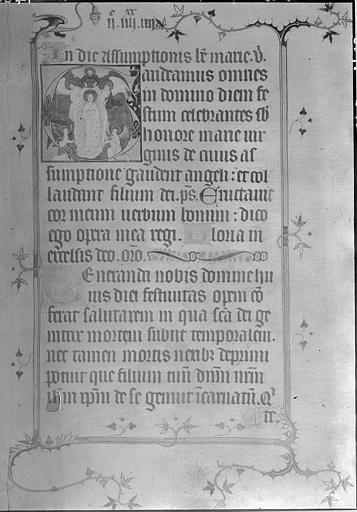 In die assumptionis bẽ marie. v̾.
Gaudeamus omnes
in domino diem fe
stum celebrantes sb̾
honore marie uir
ginis de cuius as
sumptione gaudent angeli: et col
laudant filium dei. p̄s. Eructauit
cor meum uerbum bonum: dico
ego opera mea regi. Gloria in
excelsis deo. or̄o.
Uenerandi nobis domine hu
ius diei festiuitas opem cō
ferat salutarem in qua sc̄a dei ge
nitrix mortem subiit temporalem.
nec tamen mortis nexibꝫ deprimi
potuit que filium tuū dn̄m nr̄m
ihm xpm de se genuit īcarnatū. Q̾
te.